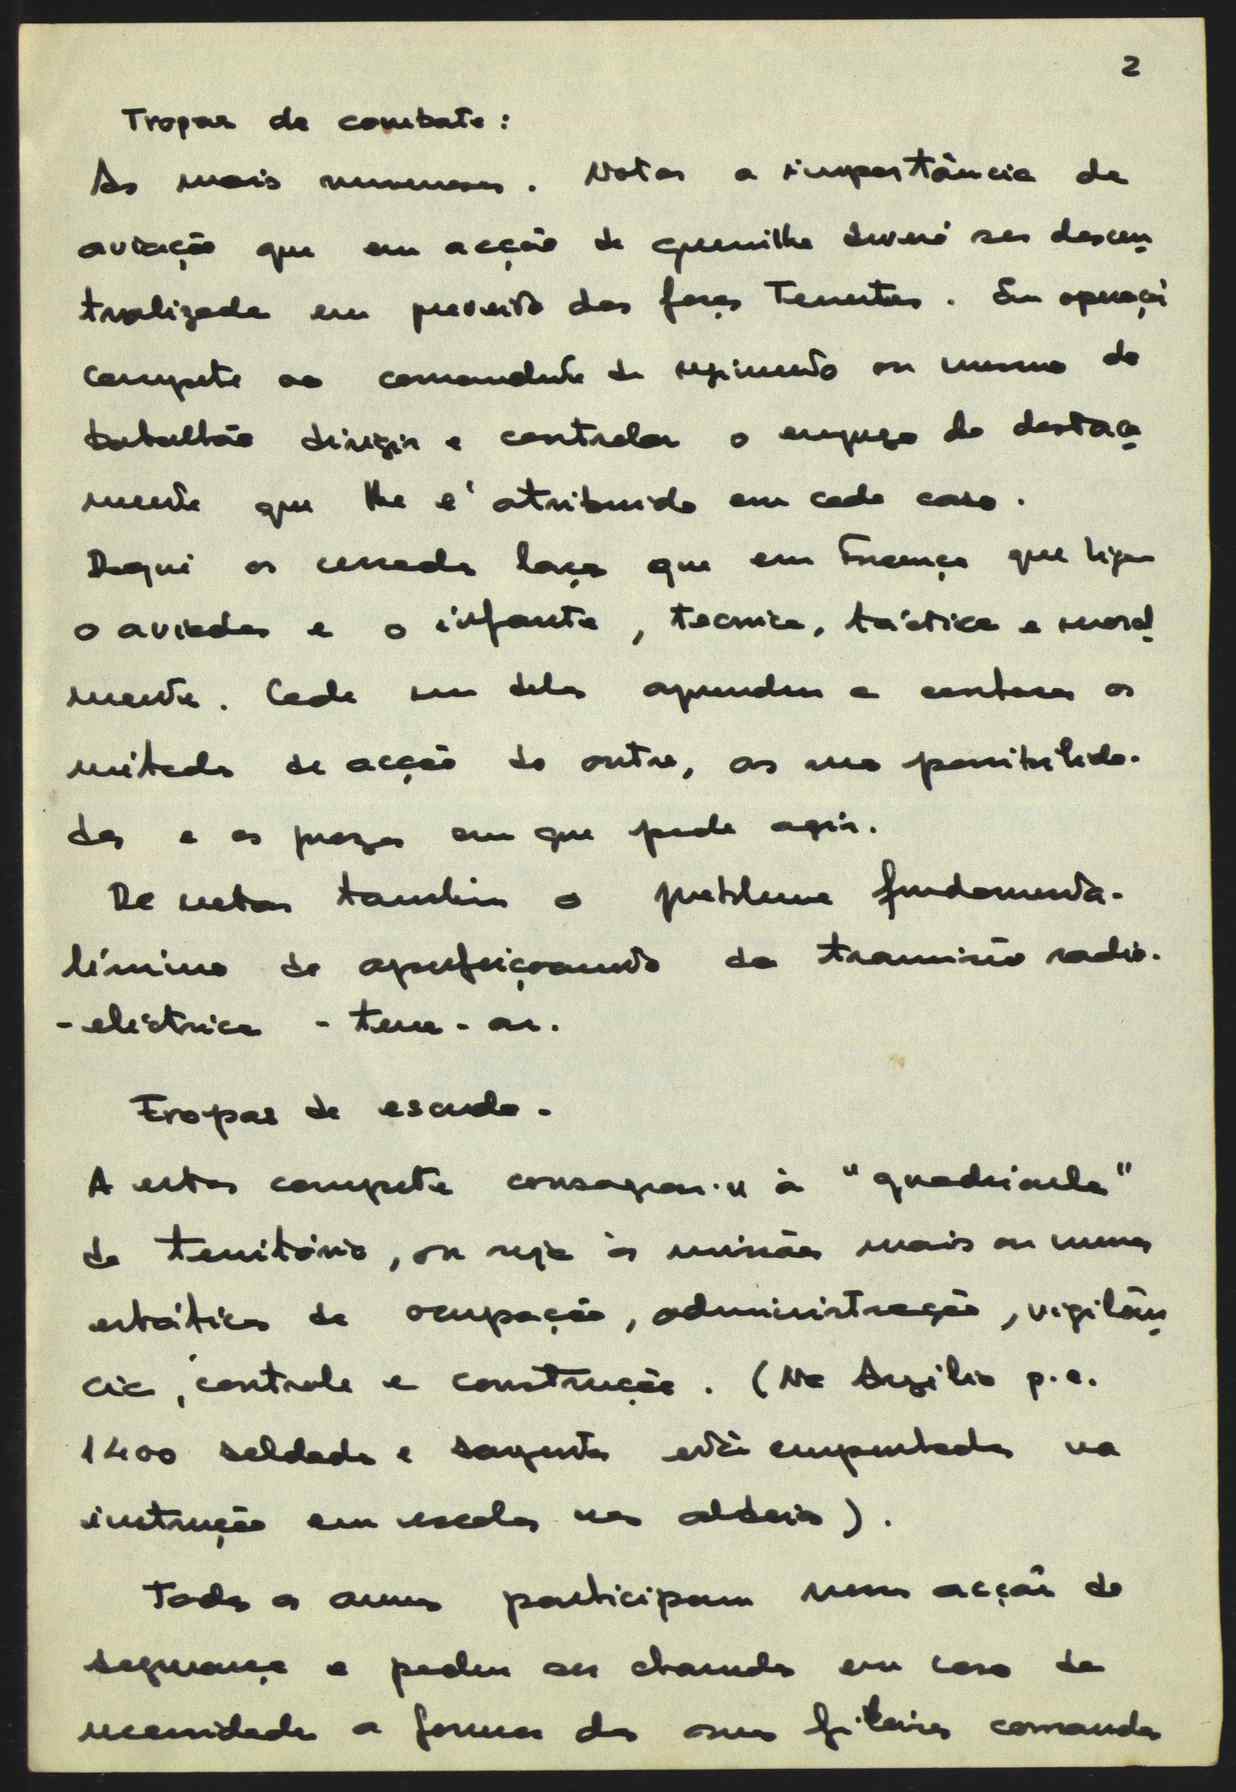 2
Tropas de combate:
As mais numerosas. Notar a importância da
aviação que em acção de guerrilha deverá ser descen
tralizada em proveito das forças Terrestres. Em operaçõ
compete ao comandante de regimento ou mesmo de
batalhão dirigir e controlar o emprego do destaca
mento que lhe é atribuido em cada caso.
Daqui os cerrados laços que em França que ligam
o aviador e o infante, tecnica, táctica e moral
mente. Cada um deles aprendeu a conhecer os
métodos de acção do outro, as suas possibilida-
des e os prazos em que pode agir.
De notar tambem o problema fundamenta-
líssimo do aperfeiçoamento da transmissão radio-
-eléctrica - terra - ar.
Tropas de escudo.
A estas compete consagrar-se à "quadricula"
do território, ou seja às missões mais ou menos
estáticas de ocupação, administração, vigilân
cia, controle e construção. (Na Argélia p.e.
1400 soldados e sargentos estão empenhados na
instrução em escolas nas aldeias).
Todas as armas participam numa acção de
segurança e podem ser chamadas em caso de
necessidade a formar das suas fileiras comandos